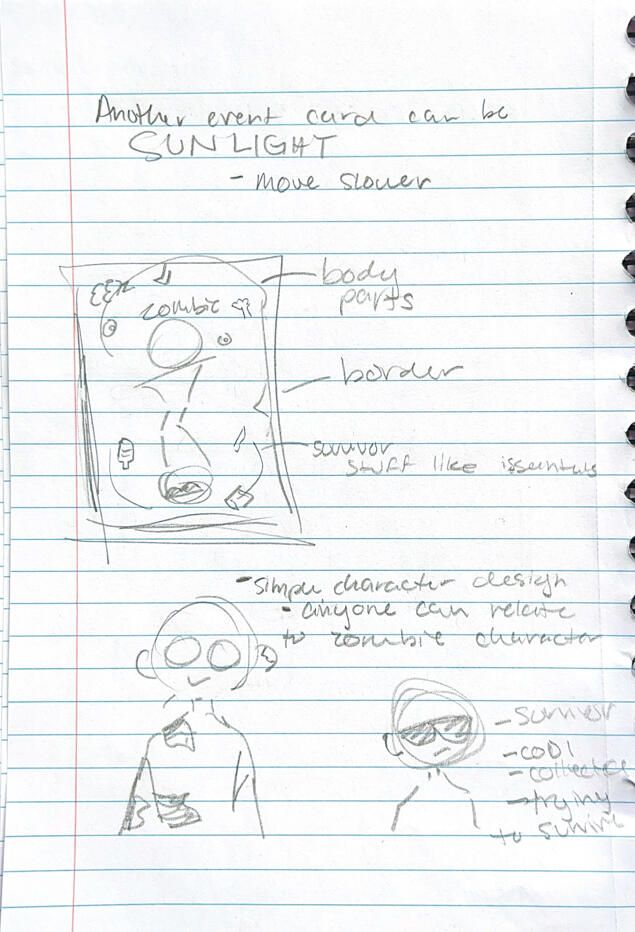 Another event card can be
SUNLIGHT
- move slower
body
parts
zombie
border
survivor
stuff like issentials
- simple character design
- anyone can relate
to zombie character
- survivor
- cool
- collected
- trying
to survive